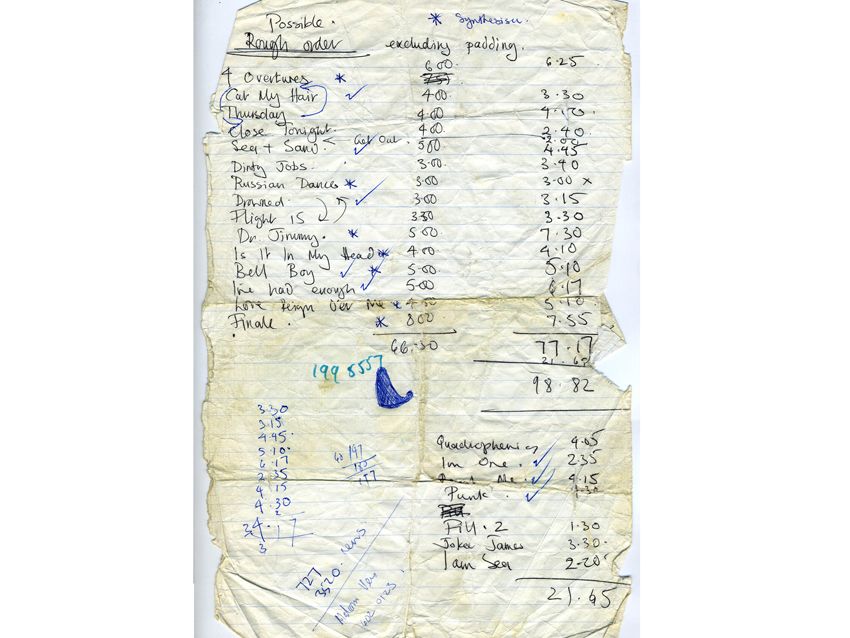 * Synthesiser
Possible.
Rough order excluding padding.
4 Overtures * 6.00 6.25
Cut My Hair ✓ 4.00 3.30
Thursday 4.00 4.10
Close Tonight. 4.00 2.40
Sea + Sand. Get Out. 5.00 4.45
Dirty Jobs. 3.00 3.40
Russian Dance * 3.00 3.00 x
Drowned ✓ 3.00 3.15
Flight 15 3.30 3.30
Dr. Jimmy. * 5.00 7.30
Is It In My Head * 4.00 4.10
Bell Boy ✓ * 5.00 5.10
I've had enough ✓ 5.00 6.17
Love Reign Oer Me * 4.30 5.10
Finale. * 8.00 7.55
66.30 77.17
21.65
199 5557
98.82
3.30
3.15
4.45
5.10
6.17
2.35
4.15
4.30
Quadrophenia 4.05
Im One. ✓ 2.35
Me. ✓ 4.15
Punk. ✓
Fill. 2 1.30
Joker James 3.30
I am Sea 2.20
21.65
727
news